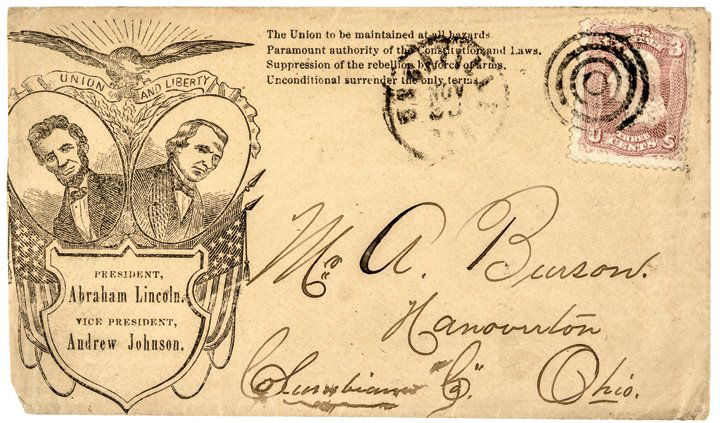 The Union to be maintained at all hazards.
Paramount authority of the Constitution and Laws.
Suppression of the rebellion by force of arms.
Unconditional surrender the only terms.
UNION AND LIBERTY
PRESIDENT,
Abraham Lincoln.
VICE PRESIDENT,
Andrew Johnson.
NOV
3
U THREE S
CENTS
A. Burson.
Hanoverton
Columbiana Co. Ohio.